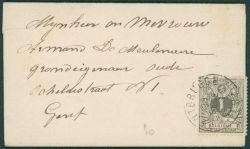 Mynheer en Mevrouw
Armand De Meulemeere
grondeigenaar oude
Scheldestraat N° 1
Gent
1